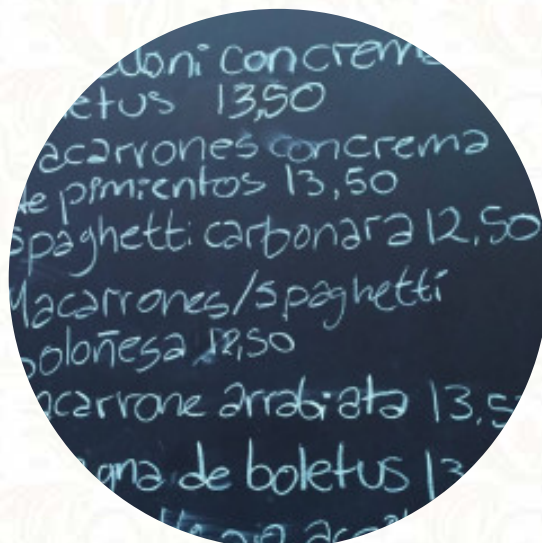 con crema
13,50
acarrones con crema
de pimientos 13,50
spaghetti carbonara 12,50
Macarrones/spaghetti
boloñesa 12,50
acarrone arrabiata 13,5
gna de boletus 13